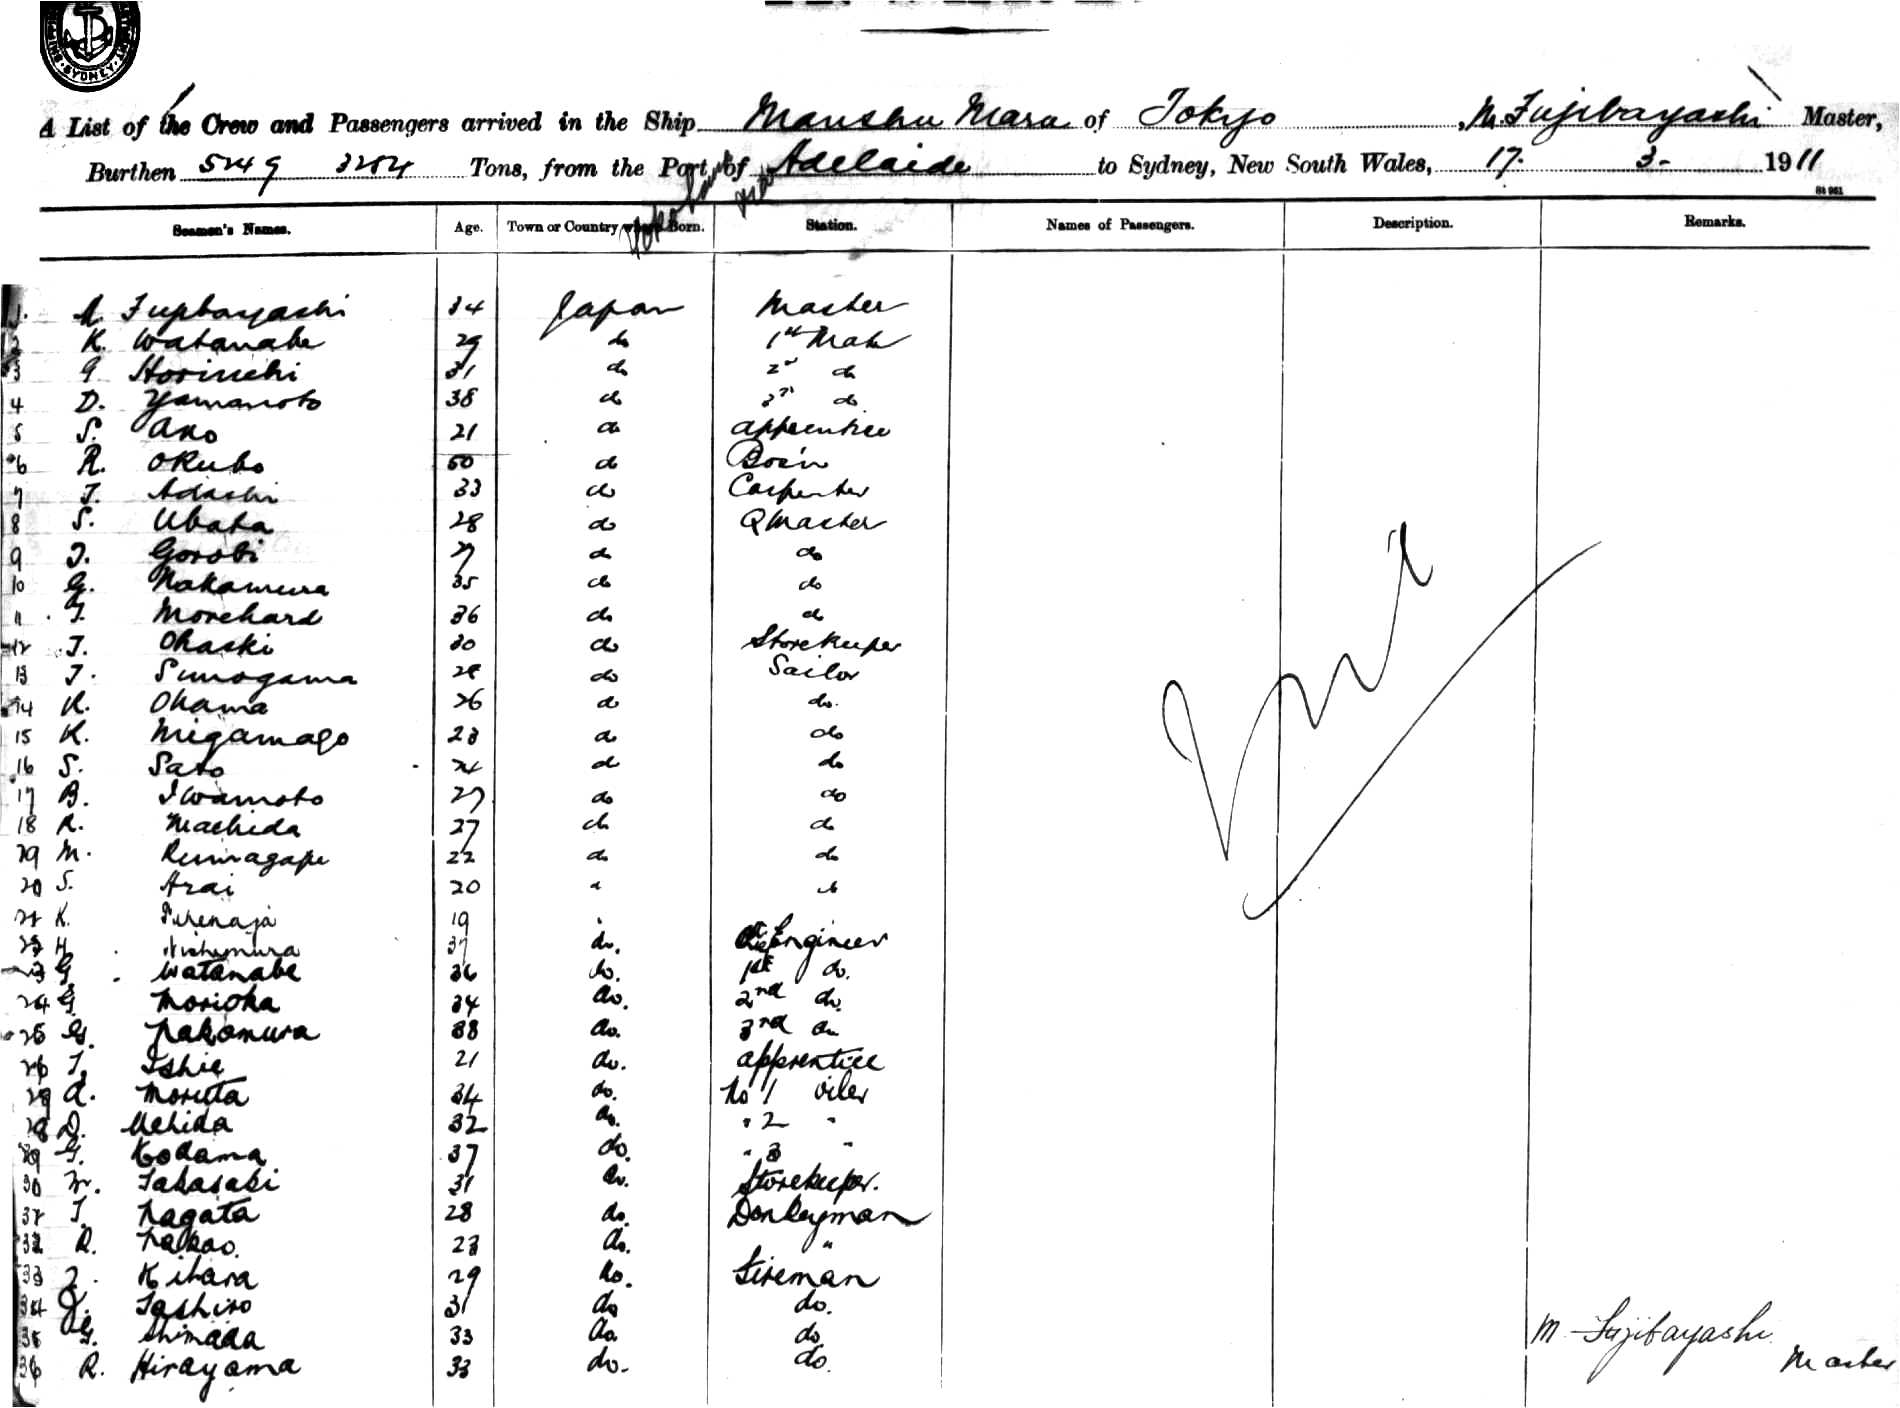 SYDNEY
A List of the Crew and Passengers arrived in the Ship Manshu Maru of Tokyo, M. Fujibayashi Master,
Burthen 5249 3284 Tons, from the Port of Adelaide to Sydney, New South Wales, 17. 3- 1911
Seamen's Names. Age. Town or Country where Born. Station. Names of Passengers. Description. Remarks.
1. Fujibayashi 34 Japan Master
2 K. Watanabe 29 do 1st Mate
3 G Horiuchi 31 do 2nd do
4 D. Yamamoto 38 do 3rd do
5 S. Ano 21 do apprentice
6 R. Okubo 50 do Bos'n
7 T. Adachi 33 do Carpenter
8 S. Ubata 28 do Q Master
9 T. Gorobi do do
10 G. Nakamura 35 do do
11 T. Morehard 36 do do
12 T. Ohaski 30 do Storekeeper
13 T. Sunogama do Sailor
14 K. Ohama 26 do do.
15 K. Migamago 23 do do
16 S. Sato 24 do do
17 B. Iwamoto 27 do do
18 R. Machida 27 do do
19 M. 22 do do
20 S. Arai 20 " do
21 K. 19 "
22 H. Nishimura 37 do. Engineer
23 G Watanabe 36 do. 1st do.
24 G. Morioka 34 do. 2nd do.
25 G. Nakamura 38 do. 3rd do
26 T. Ishie 21 do. apprentice
A. Moruta 34 do. No 1 oiler
28 D. Uchida 32 do. " 2 "
29 G. Kodama 37 do. " 3 "
30 M. Takasaki 31 do. Storekeeper.
31 T. Nagata 28 do. Donkeyman
32 R. Nakao. 23 do. "
33 Kihara 29 do. Fireman
34 Tashiro 31 do do.
35 G. Shimada 33 do. do
36 R. Hirayama 33 do. do.
Nil
M. Fujibayashi
Master